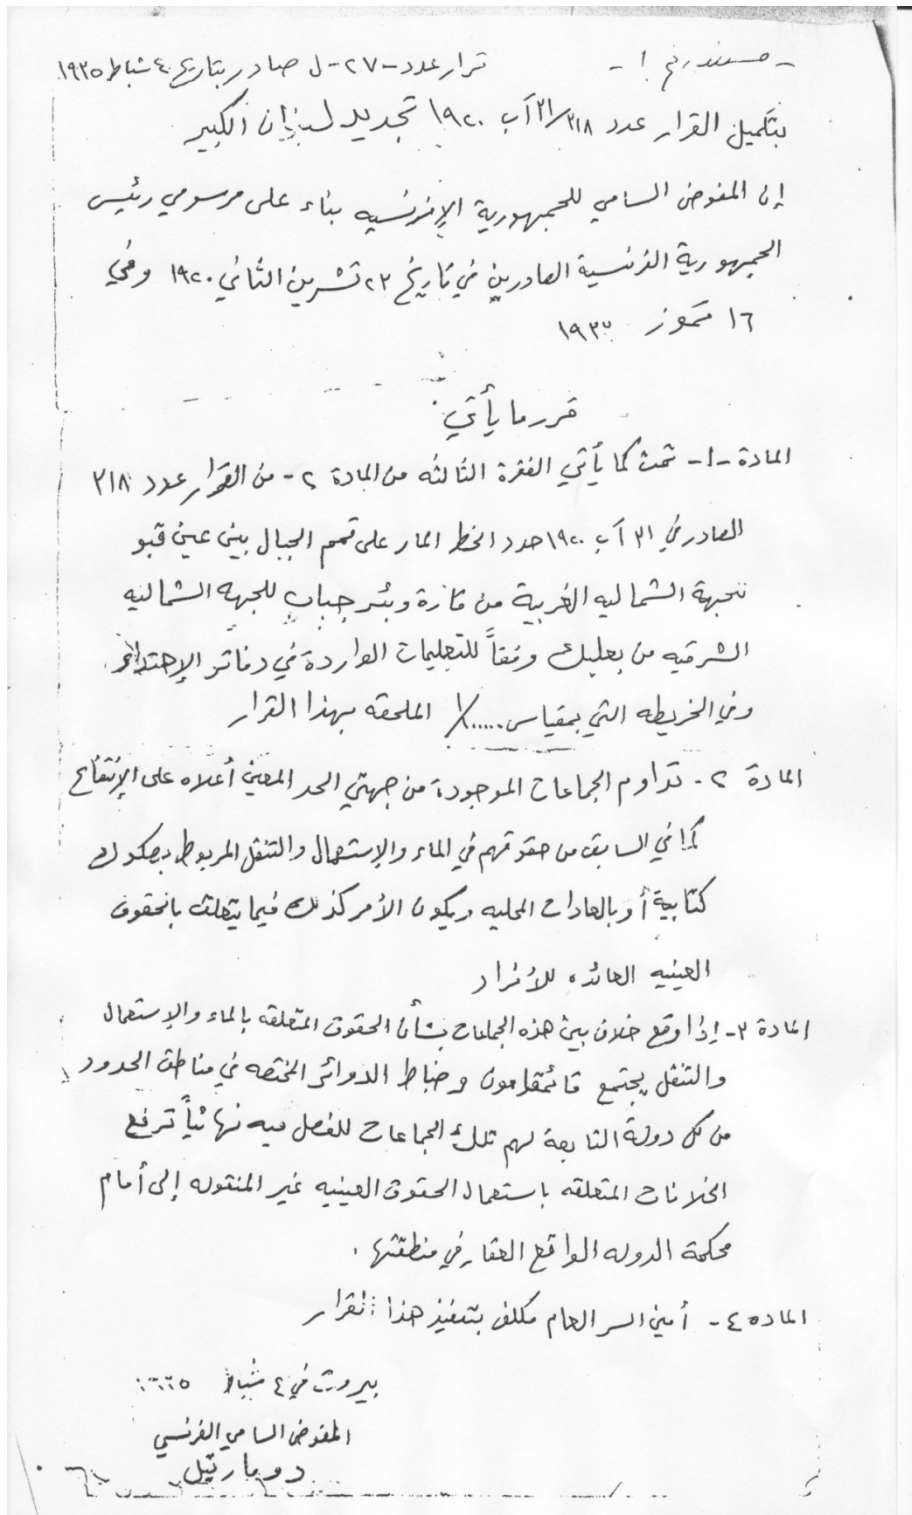 - مستند رقم ١ -
قرار عدد - ٢٧ - ل صادر بتاريخ ٤ شباط ١٩٣٥
بتكميل القرار عدد ٣١٨/ ٣١ آب ١٩٢٠ تحديد لبنان الكبير
إن المفوض السامي للجمهورية الإفرنسيه بناء على مرسومي رئيس
الجمهورية الفرنسية الصادرين في تاريخ ٢٣ تشرين الثاني ١٩٢٠ وفي
١٦ تموز ١٩٣٣
قرر ما يأتي:
المادة - ١ - تمت كما يأتي الفقرة الثالثه من المادة ٢ - من القرار عدد ٣١٨
الصادر في ٣١ آب ١٩٢٠ حدد الخط المار على قمم الجبال بين عين قبو
للجهة الشماليه الغربية من قارة وبئر جباب للجهه الشماليه
الشرقيه من بعلبك وفقاً للتعليمات الواردة في دفاتر
وفي الخريطه التي بمقياس ١/.....  الملحقه بهذا القرار
المادة ٢ - تداوم الجماعات الموجودة من جهتي الحد المعين أعلاه على الإنتفاع
كما في السابق من حقوقهم في الماء والإستعمال والتنقل المربوط بصكوك
كتابية أو بالعادات المحليه ويكون الأمر كذلك فيما يتعلق بالحقوق
العينيه العائده للأفراد
المادة ٣ - إذا وقع خلاف بين هذه الجماعات بشأن الحقوق المتعلقه بالماء والإستعمال
والتنقل يجتمع قائمقامون وضباط الدوائر المختصه في مناطق الحدود
من كل دولة التابعة لهم تلك الجماعات للفصل فيه نهائياً ترفع
الخلافات المتعلقه باستعمال الحقوق العينيه غير المنقوله إلى أمام
محكمة الدوله الواقع العقار في منطقتها .
الماده ٤ - أمين السر العام مكلف بتنفيذ هذا القرار
بيروت في ٤ شباط
المفوض السامي الفرنسي
دو مارتيل